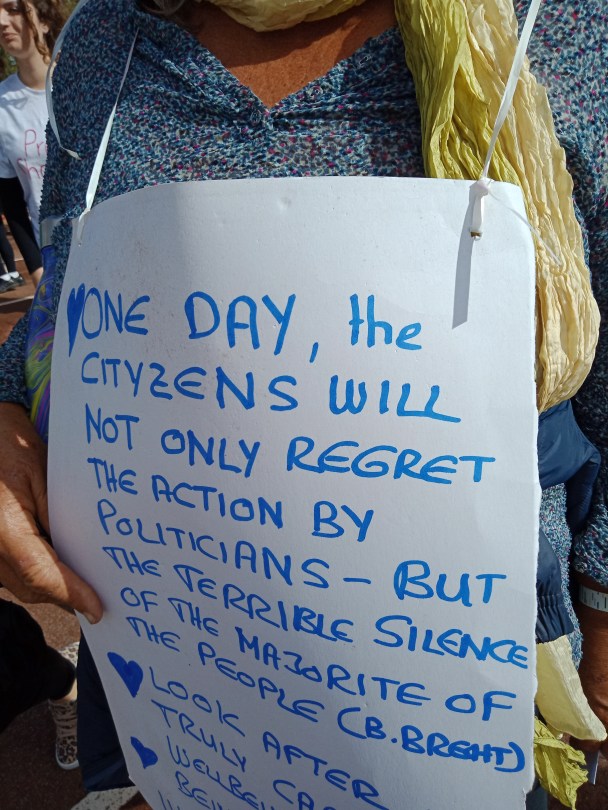 ♥ONE DAY, the
CITYZENS WILL
NOT ONLY REGRET
THE ACTION BY
POLITICIANS - BUT
THE TERRIBLE SILENCE
OF THE MAJORITE OF
THE PEOPLE (B.BREHT)
♥ LOOK AFTER
TRULY
♥